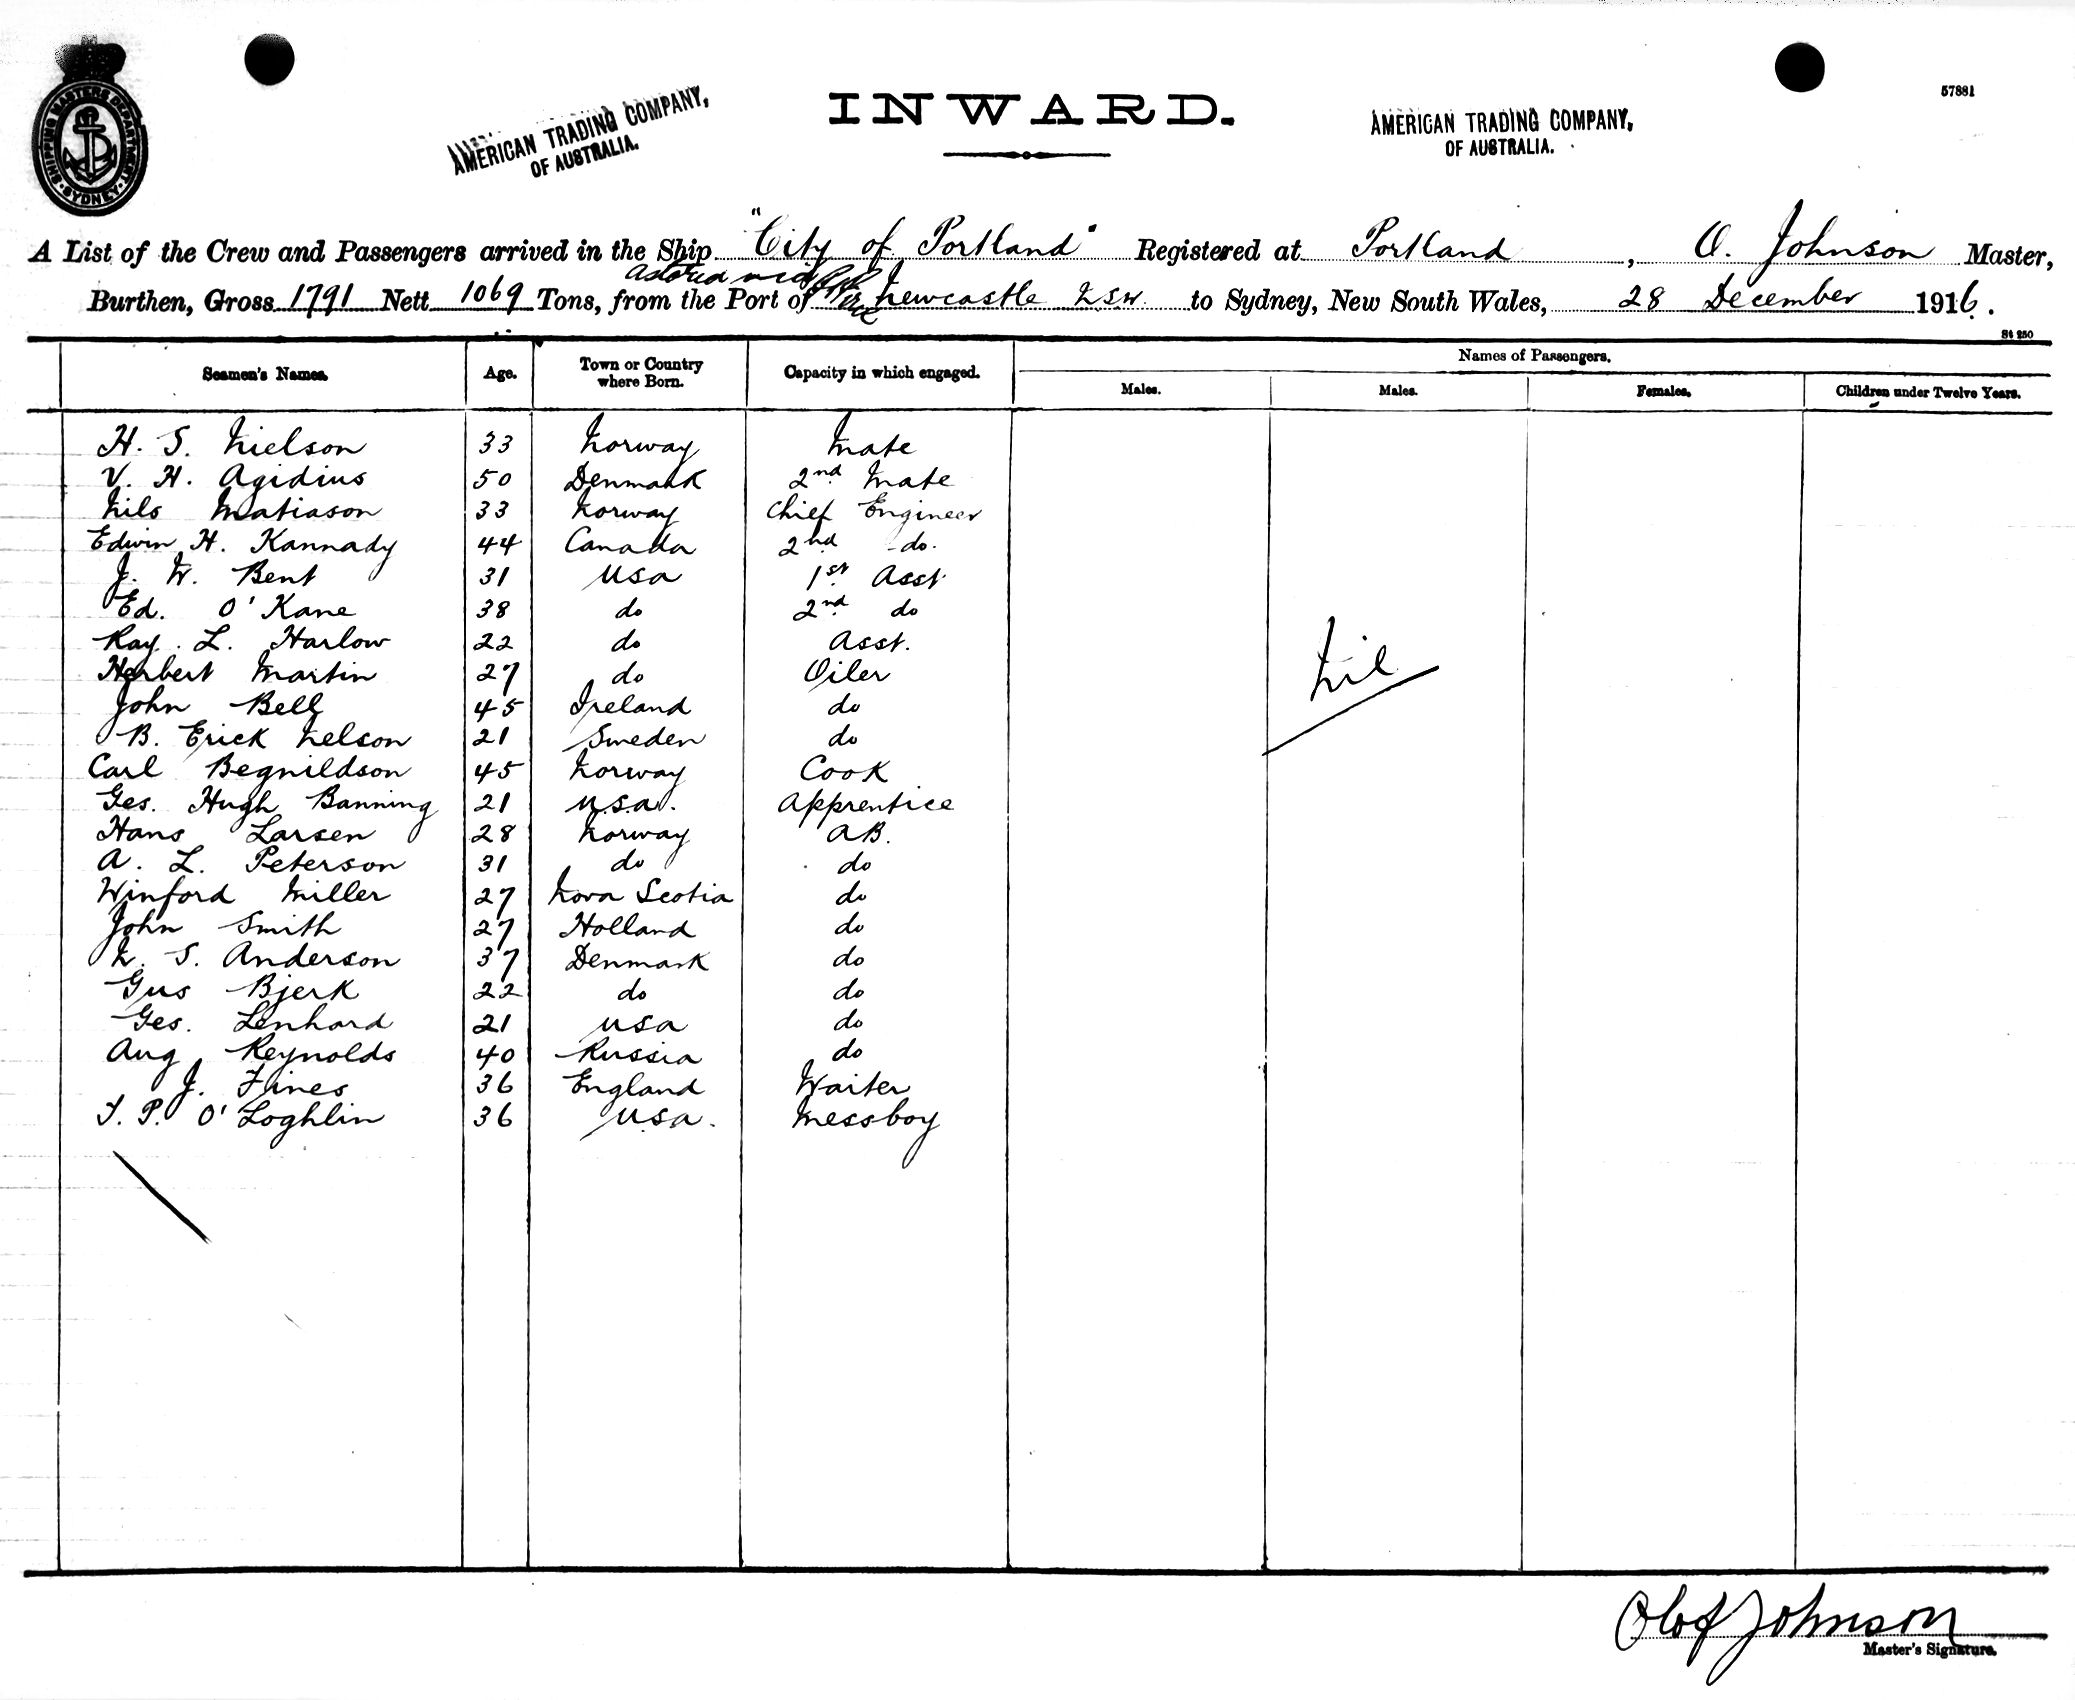 SHIPPING MASTERS DEPARTMENT
SYDNEY
57881
AMERICAN TRADING COMPANY,
OF AUSTRALIA.
INWARD.
AMERICAN TRADING COMPANY,
OF AUSTRALIA.
A List of the Crew and Passengers arrived in the Ship "City of Portland" Registered at Portland, O. Johnson Master,
Astoria via
Burthen, Gross 1791 Nett 1069 Tons, from the Port of Newcastle NSW. to Sydney, New South Wales, 28 December 1916.
St 250
Seamen's Names. Age. Town or Country where Born. Capacity in which engaged. Names of Passengers.
Males. Males. Females. Children under Twelve Years.
H. S. Nielson 33 Norway Mate
V. H. Agidius 50 Denmark 2nd Mate
Nils Matiason 33 Norway Chief Engineer
Edwin H. Kannady 44 Canada 2nd do.
J. W. Bent 31 USA 1st Asst
Ed. O'Kane 38 do 2nd do
Ray. L. Harlow 22 do Asst.
Herbert Martin 27 do Oiler
Nil
John Bell 45 Ireland do
B. Erick Nelson 21 Sweden do
Carl Begnildson 45 Norway Cook
Geo. Hugh Banning 21 U.S.A. Apprentice
Hans Larsen 28 Norway AB.
A. L. Peterson 31 do do
Winford Miller 27 Nova Scotia do
John Smith 27 Holland do
N. S. Anderson 37 Denmark do
Gus Bjerk 22 do do
Geo. Lenhard 21 USA do
Aug Reynolds 40 Russia do
J. Fines 36 England Waiter
T. P. O'Loghlin 36 USA. Messboy
Olof Johnson
Master's Signature.